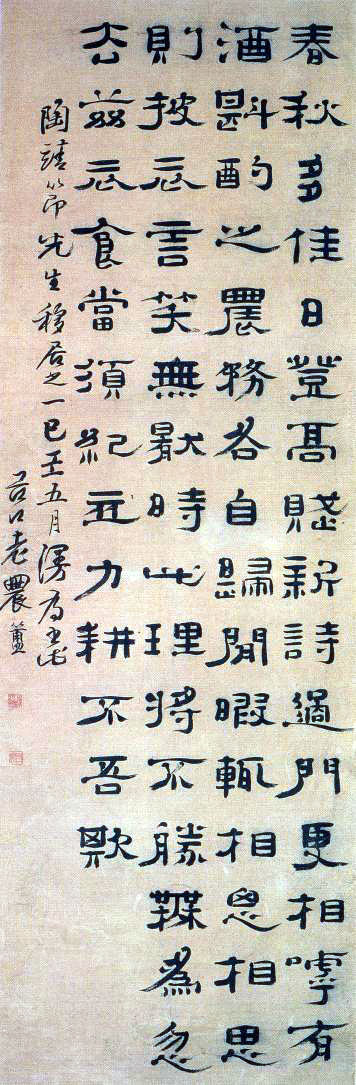 春秋多佳日登高賦新詩過門更相嘑有
酒斟酌之農務各自歸閒暇輒相思相思
則披衣言笑無猒時此理將不勝為忽
去茲衣食當須紀力耕不吾欺
陶靖節先生移居之一 五月漫為書
谷口老農簠